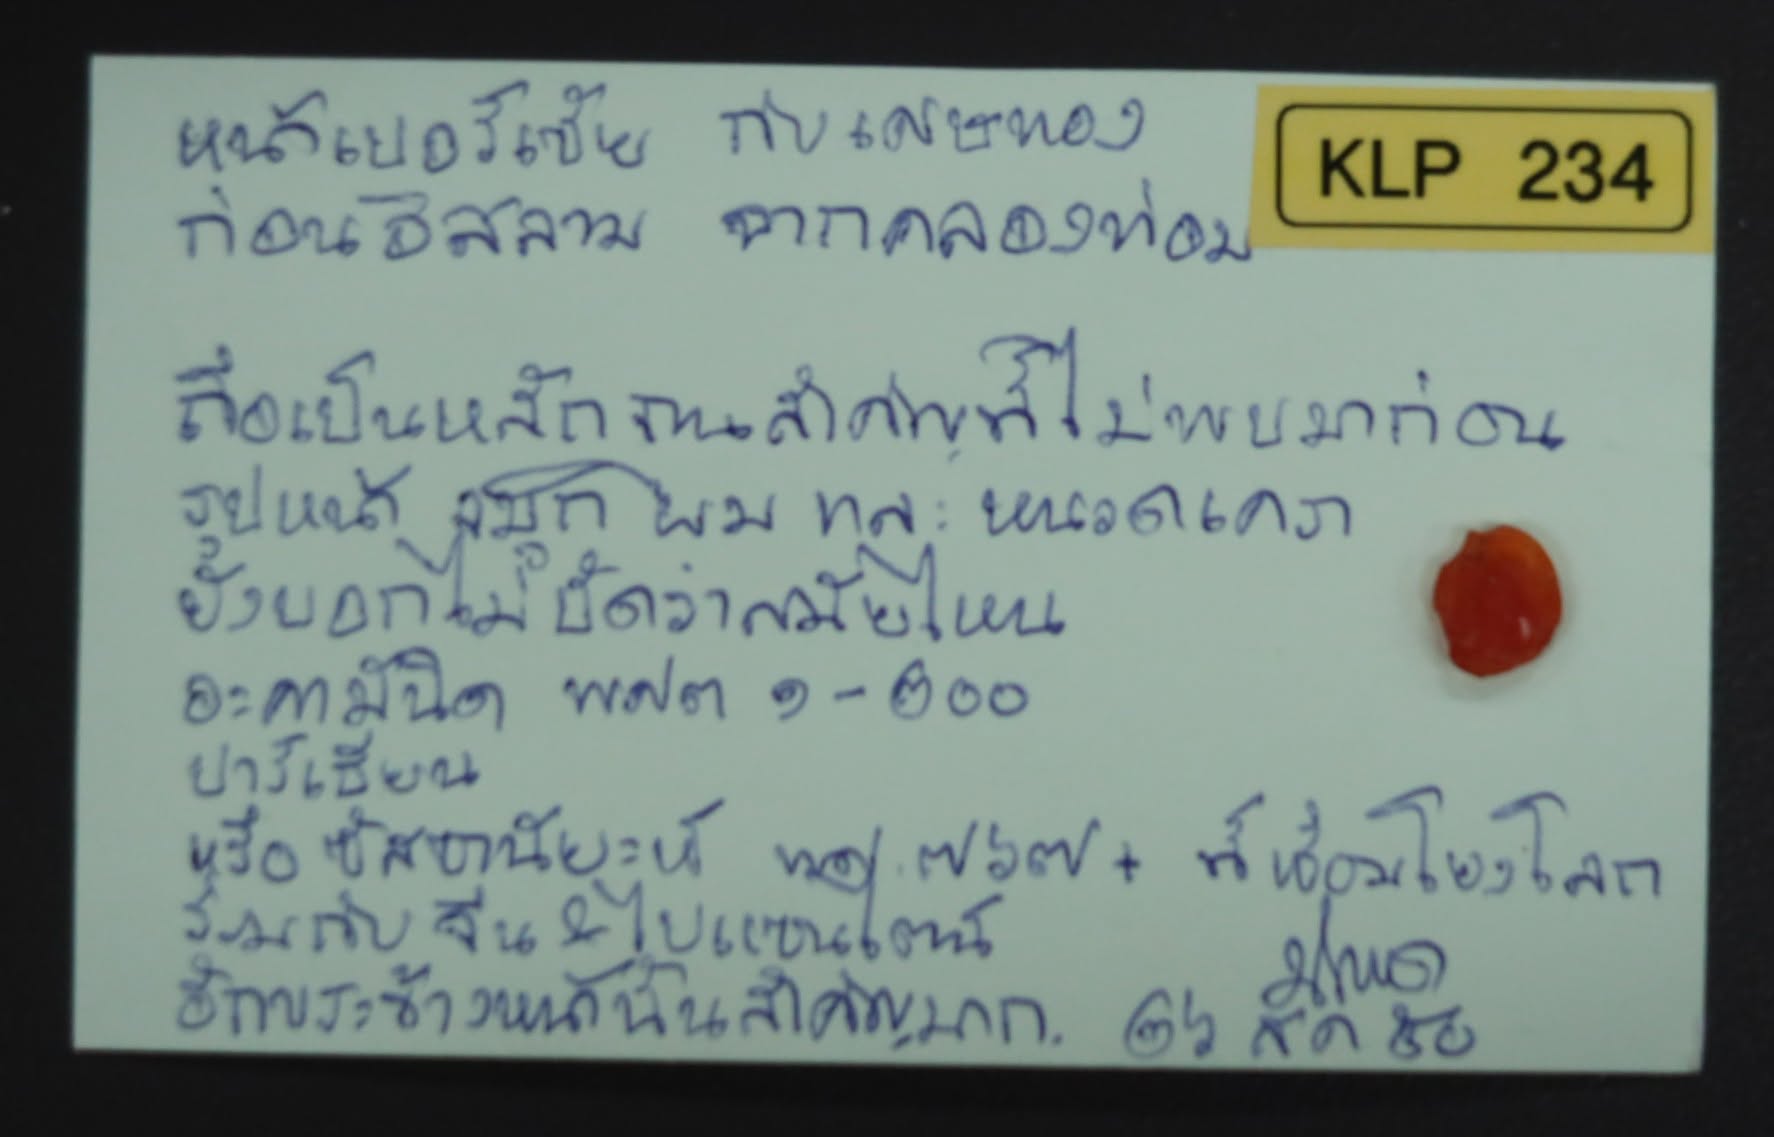 หน้าเปอร์เซีย กับเศษทอง
KLP 234
ก่อนอิสลาม จากคลองท่อม
ถือเป็นหลักฐานสำคัญที่ไม่พบมาก่อน
รูปหน้า จมูก ผม และ หนวดเครา
ยังบอกไม่ได้ชัดว่าสมัยไหน
อะคามันิด พศต ๑-๒๐๐
ปาร์เธียน
หรือ ซัสซานัยะห์ พศ. ๗๖๗ + ที่เชื่อมโยงโลก
ร่วมกับ จีน & ไบแซนไตน์
อักขระข้างหน้านั้นสำคัญมาก.
๒๖ สค